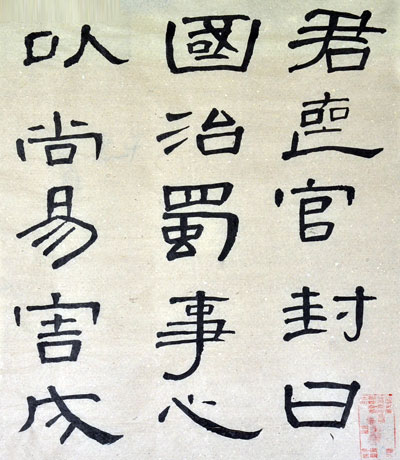 君喪官封曰
國治蜀事心
以尚易害成